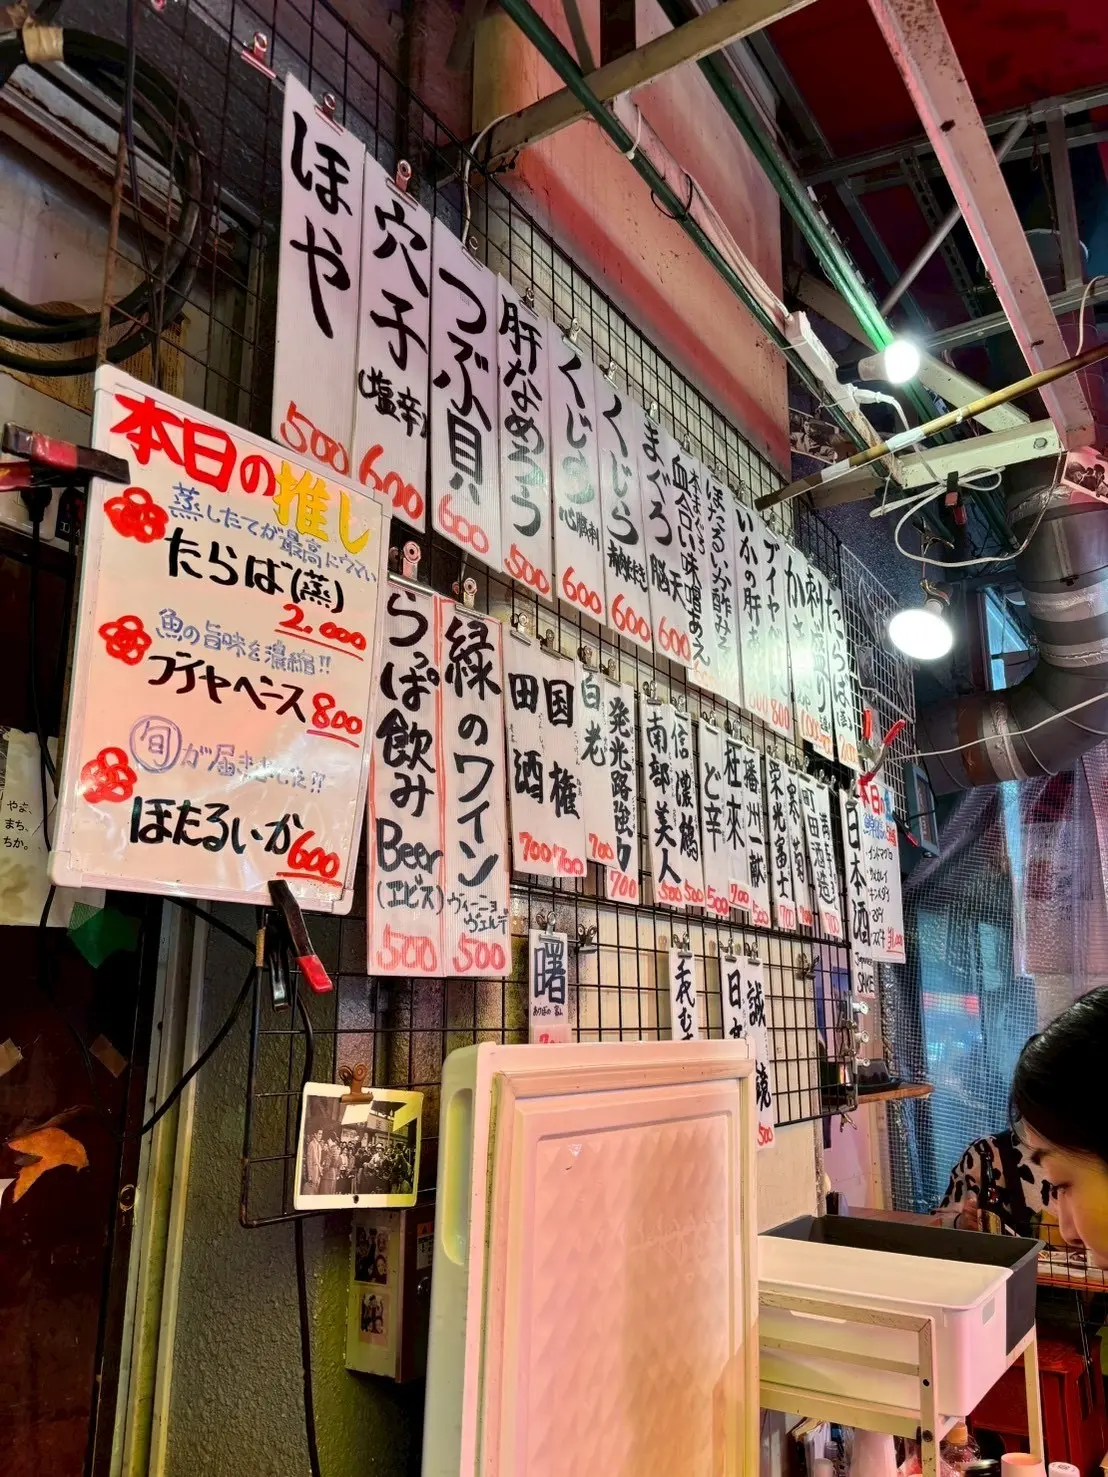 本日の推し
蒸したてが最高にウマい
たらば(蒸)
2.000
魚の旨味を濃縮!!
ブイヤベース 800
旬が届きました!!
ほたるいか 600
ほや
500
穴子
(塩辛)
600
つぶ貝
600
肝なめろう
500
くじら
心臓刺
600
くじら
600
まぐろ脳天
600
血合い味噌あえ
ほたるいか酢みそ
いかの肝
刺盛り
たらば
らっぱ飲み
Beer
(エビス)
500
緑のワイン
ヴィーニョ
ヴェルデ
500
田酒
700
国権
700
白老
700
発光路強力
700
南部美人
500
信濃鶴
500
一ど辛
500
旺來
700
播州一献
500
栄光冨士
700
町田酒造
日本酒
Japanese
SAKE
本日の
インドマグロ
キンメダイ
曙
あけぼの
誠鏡
500
やよ、
まち、
ちか。